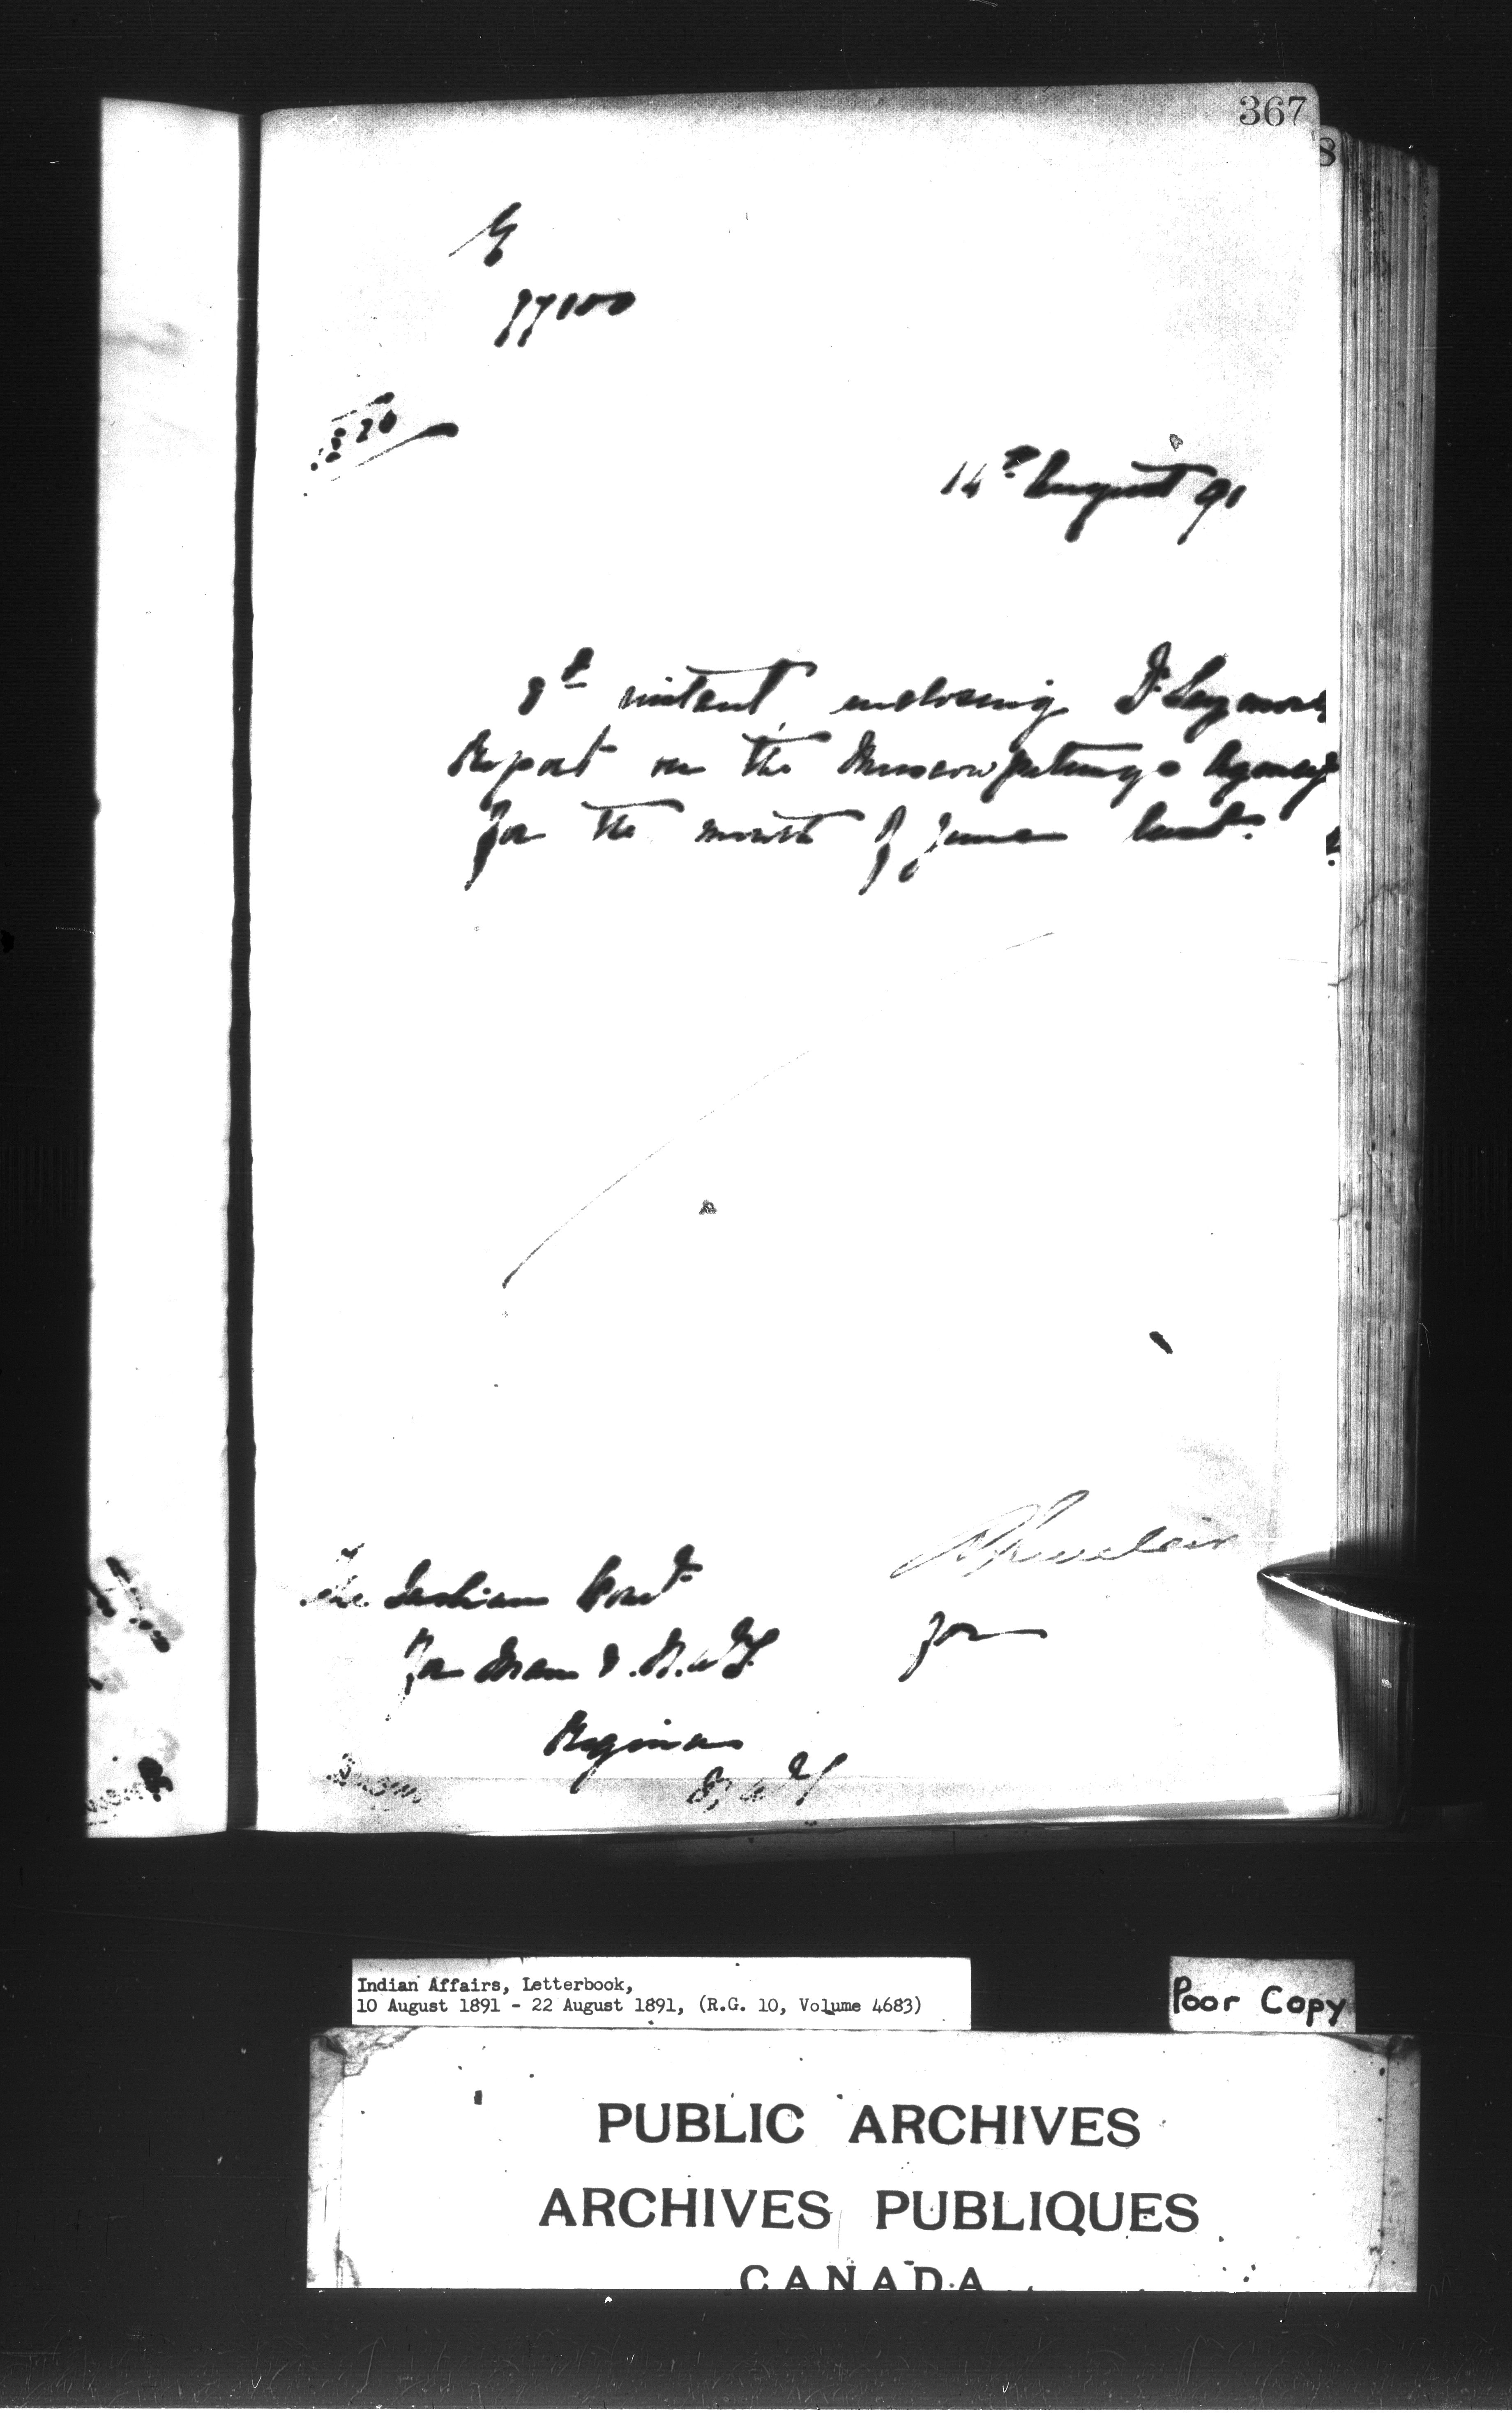 367
8
77100
520
14th August 91
8th instant enclosing Dr Seymour's
Report on the Muscowpetung's Agency
for the month of June last.
R Sinclair
The Indian Comr
for
for Man & N.W.T.
Regina
Indian Affairs, Letterbook,
10 August 1891 - 22 August 1891, (R.G. 10, Volume 4683)
Poor Copy
PUBLIC ARCHIVES
ARCHIVES PUBLIQUES
CANADA